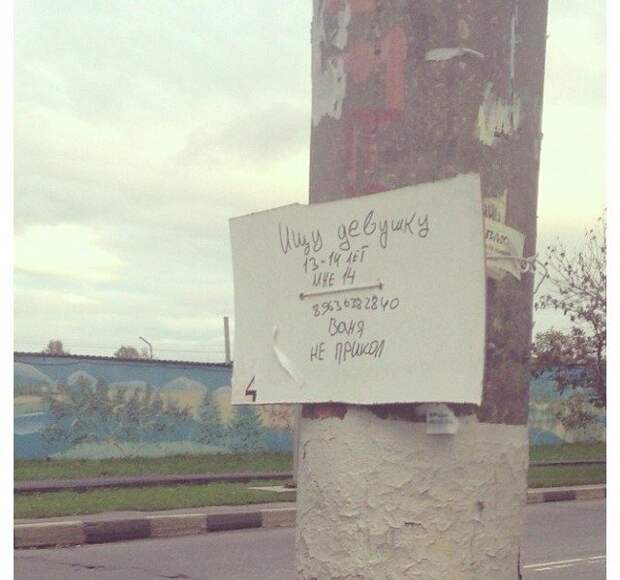 Ищу девушку
13-14 ЛЕТ
МНЕ 14
89636382840
Ваня
НЕ ПРИКОЛ
4